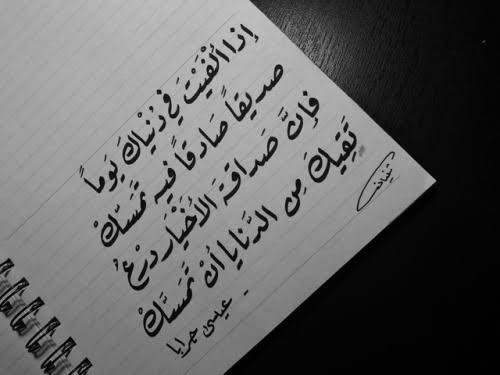 إذا ألْفَيْتَ في دُنْيَاكَ يَوماً
صديقاً صَادقاً فبه تمَسَّكْ
فإنَّ صَداقةَ الأخْيَار دِرْعٌ
تَقِيكَ مِن الدَّنايا أنْ تَمَسَّكْ
- عيسى جرابا